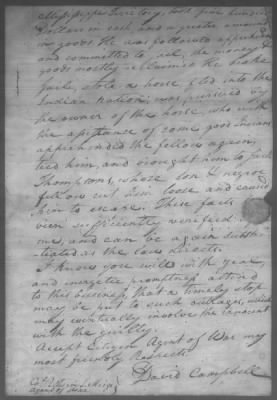 Mississippi Territory, took five hundred
Dollars in cash and a greater amount
in goods He was followed apprehended
and committed to jail, the money &
goods mostly reclaimed He broke
jail, stole a horse fled into the
Indian Nation; was pursued by
the owner of the horse, who with
the assistance of some good Indians
apprehended the fellow again,
tied him, and brought him to
Thompsons, whose son & negroe
fellow cut him loose and caused
him to escape. These facts
been sufficiently verified
me, and can be again substan-
tiated as the law directs.
I know you will with
and energetic promptness attend
to this business, that a timely stop
may be put to such outrages, which
may eventually involve the innocent
with the guilty.
Accept Citizen Agent of War my
most friendly Respects
David Campbell
Col. Return J. Meigs
Agent of War